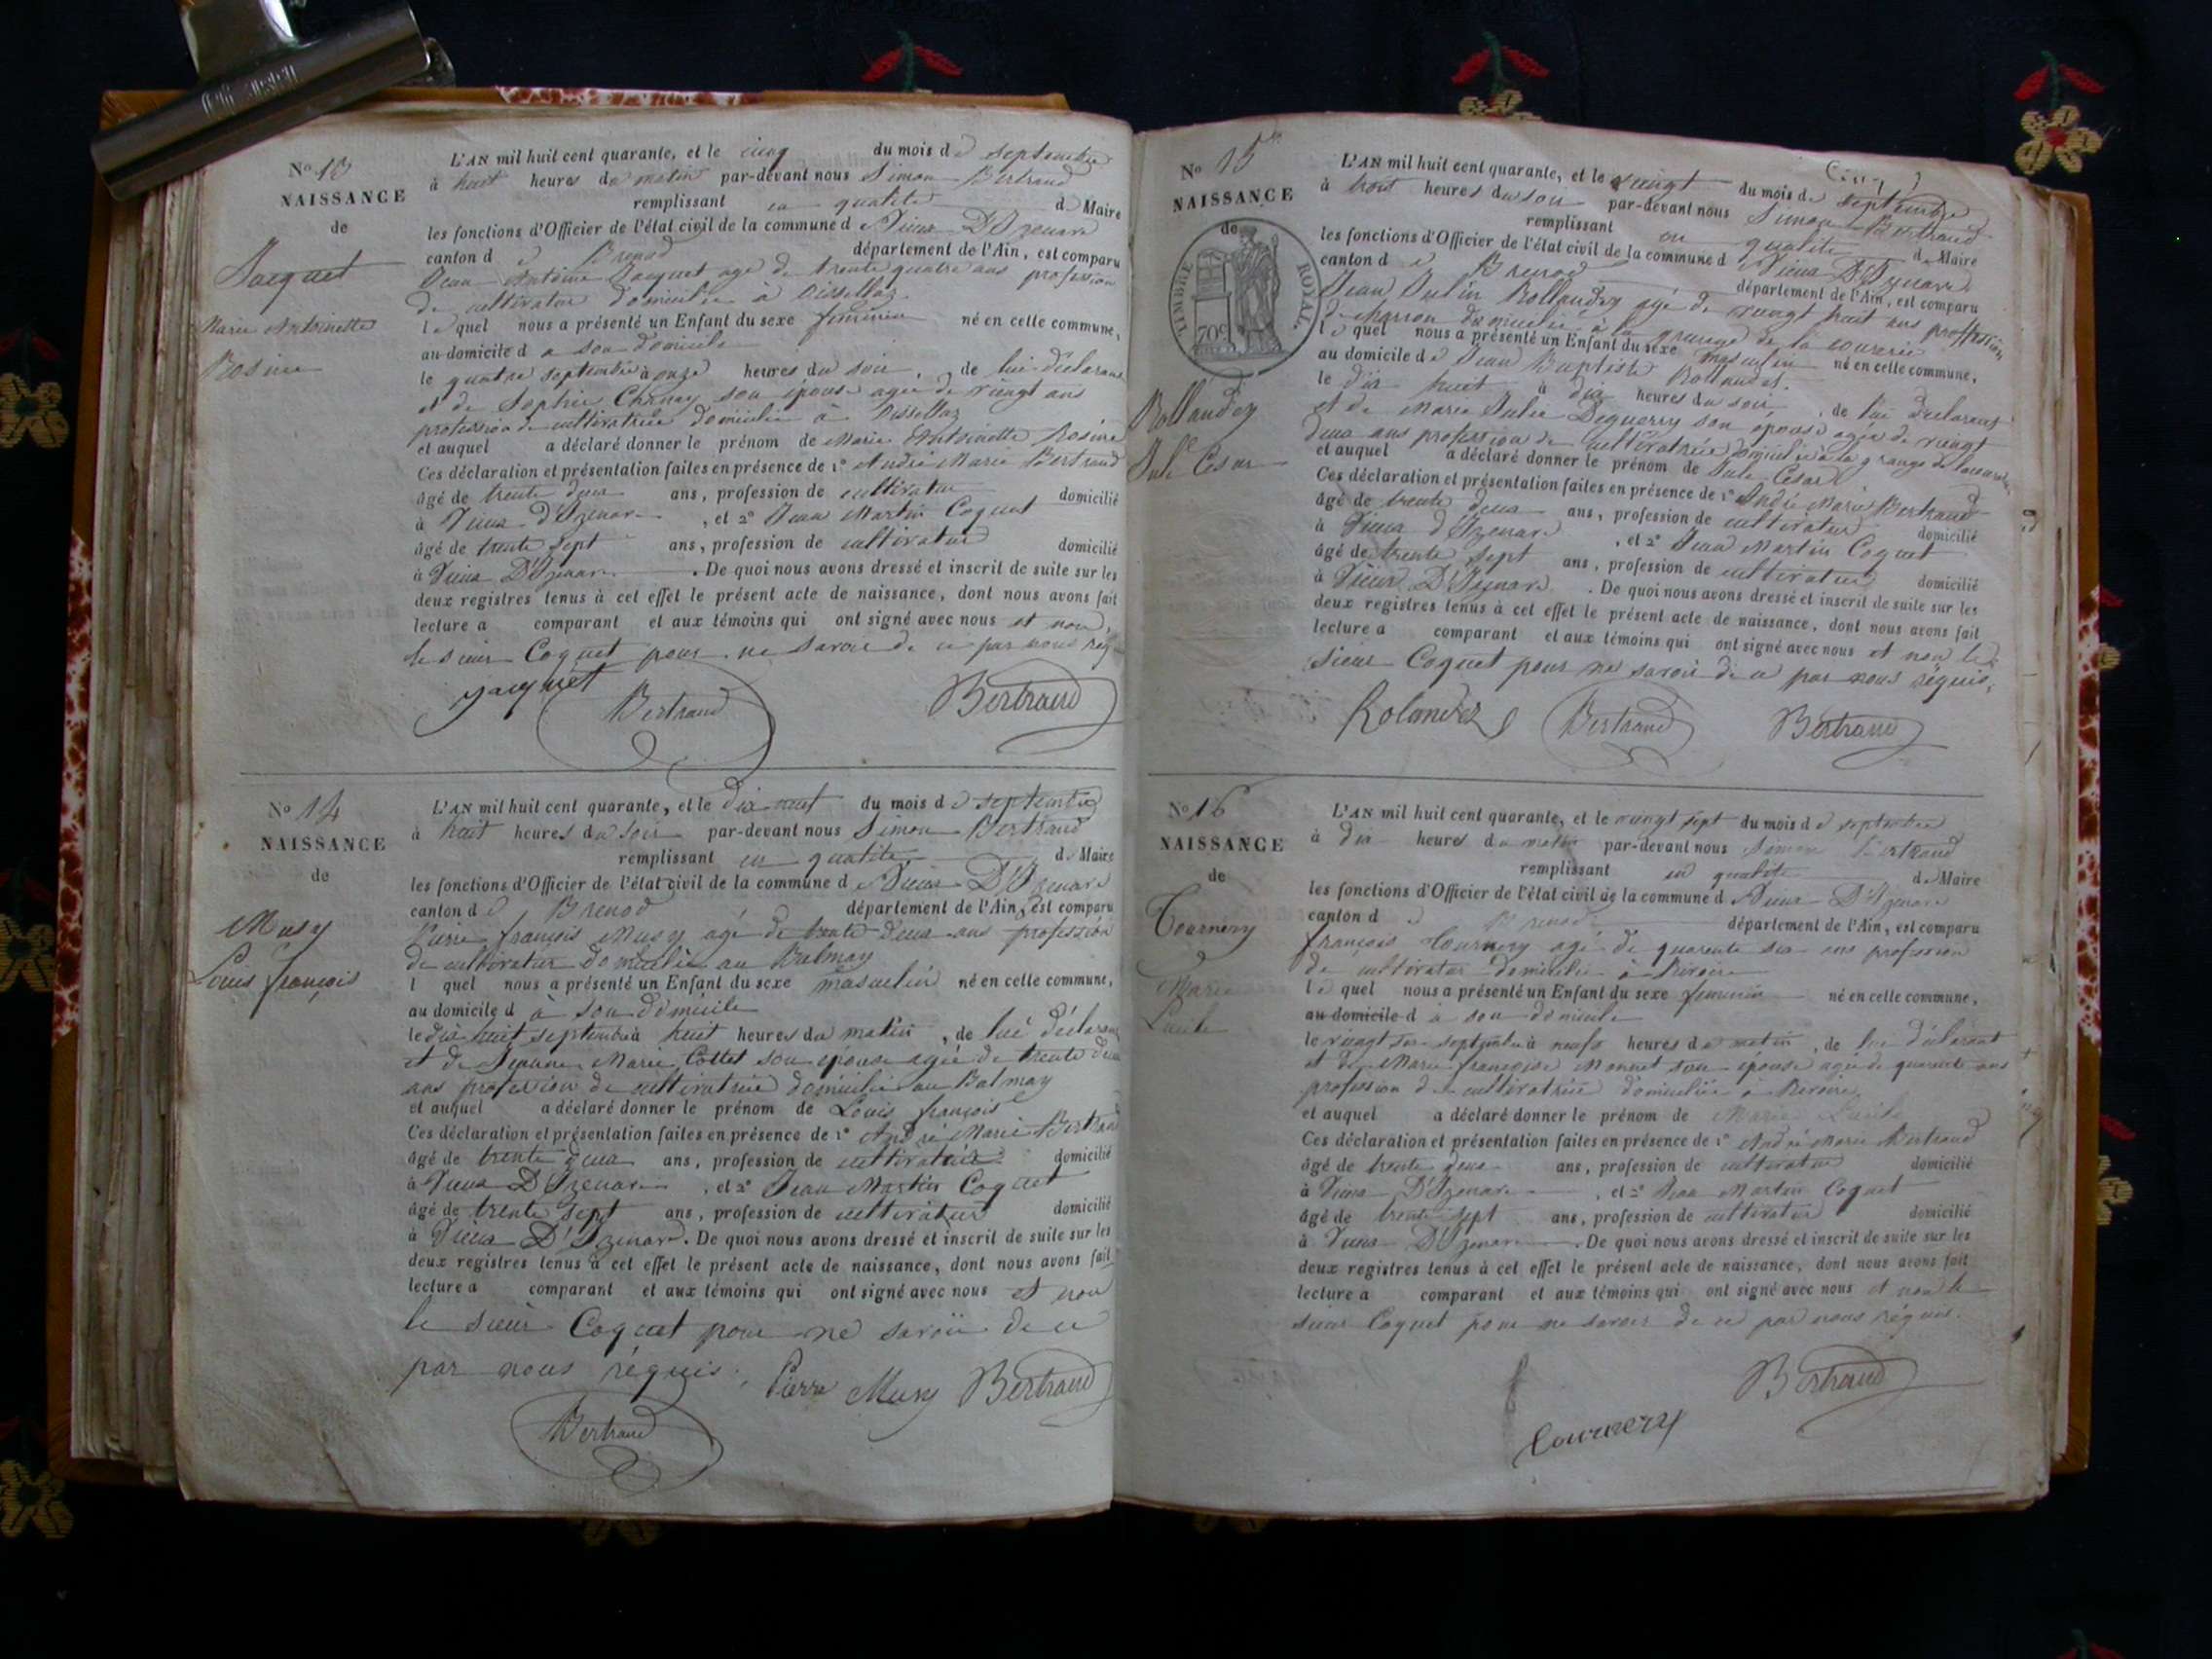 No 13
NAISSANCE
de
Jacquet
Marie Antoinette
Rosine
L'AN mil huit cent quarante, et le cinq du mois de septembre
à huit heures du matin par-devant nous Simon Bertrand
remplissant en qualité de Maire
les fonctions d'Officier de l'état civil de la commune d Vieux D'Izenave
canton d e Brenod département de l'Ain, est comparu
Jean Antoine Jacquet agé de trente quatre ans profession
de cultivateur domicilié à
le quel nous a présenté un Enfant du sexe féminin né en celle commune,
au domicile d a son domicile
le quatre septembre à onze heures du soir, de lui déclarant
et de Sophie Chanay son épouse agée de vingt ans
profession de cultivatrice domicilié à
et auquel a déclaré donner le prénom de Marie Antoinette Rosine
Ces déclaration et présentation faites en présence de 1° André Marie Bertrand
âgé de trente deux ans, profession de cultivateur domicilié
à Vieux d'Izenave, et 2° Jean Martin Coquet
âgé de trente sept ans, profession de cultivateur domicilié
à Vieux D'Izenave. De quoi nous avons dressé et inscrit de suite sur les
deux registres tenus à cet effet le présent acte de naissance, dont nous avons fait
lecture a comparant et aux témoins qui ont signé avec nous et non,
le sieur Coquet pour ne savoir de ce par nous req
Jacquet Bertrand Bertrand
No 14
NAISSANCE
de
Musy
Louis françois
L'AN mil huit cent quarante, et le dix neuf du mois d e septembre
à huit heures du soir par-devant nous Simon Bertrand
remplissant en qualité de Maire
les fonctions d'Officier de l'état civil de la commune d e Vieux D'Izenave
canton d e Brenod département de l'Ain, est comparu
Pierre françois Musy agé de trente deux ans profession
de cultivateur domicilié au Balmay
l quel nous a présenté un Enfant du sexe masculin né en celle commune,
au domicile d à son domicile
le dix huit septembre à huit heures du matin, de lui déclarant
et de Jeanne Marie Cottet son épouse agée de trente deux
ans profession de cultivatrice domicilié au Balmay
et auquel a déclaré donner le prénom de Louis françois
Ces déclaration et présentation faites en présence de 1° André Marie Bertrand
âgé de trente deux ans, profession de cultivateur domicilié
à Vieux D'Izenave, et 2° Jean Martin Coquet
âgé de trente sept ans, profession de cultivateur domicilié
à Vieux D'Izenave. De quoi nous avons dressé et inscrit de suite sur les
deux registres tenus à cet effet le présent acte de naissance, dont nous avons fait
lecture a comparant et aux témoins qui ont signé avec nous et non
le sieur Coquet pour ne savoir de ce
par nous réquis. Pierre Musy Bertrand
Bertrand
Cinq
No 15
NAISSANCE
de
TIMBRE ROYAL
70c
Rollandez
Jule Cesar
L'AN mil huit cent quarante, et le vingt du mois de septembre
à huit heures du soir par-devant nous Simon Bertrand
remplissant en qualité de Maire
les fonctions d'Officier de l'état civil de la commune d Vieux D'Izenave
canton d e Brenod département de l'Ain, est comparu
Jean Rollandez agé de vingt huit ans profession
de charron domicilié à la grange de la
le quel nous a présenté un Enfant du sexe masculin né en celle commune,
au domicile de Jean Baptiste Rollandez.
le dix huit à dix heures du soir, de lui déclarant
et de Marie Julie Deguerry son épouse agée de vingt
deux ans profession de cultivatrice domicilié à la grange de
et auquel a déclaré donner le prénom de Jule César
Ces déclaration et présentation faites en présence de 1° André Marie Bertrand
âgé de trente deux ans, profession de cultivateur domicilié
à Vieux d'Izenave, et 2° Jean Martin Coquet
âgé de trente sept ans, profession de cultivateur domicilié
à Vieux D'Izenave. De quoi nous avons dressé et inscrit de suite sur les
deux registres tenus à cet effet le présent acte de naissance, dont nous avons fait
lecture a comparant et aux témoins qui ont signé avec nous et non le
sieur Coquet pour ne savoir de ce par nous réquis.
Rolandez Bertrand Bertrand
No 16
NAISSANCE
de
Tournery
Marie
Lucile
L'AN mil huit cent quarante, et le vingt sept du mois d e septembre
à dix heures du matin par-devant nous Simon Bertrand
remplissant en qualité de Maire
les fonctions d'Officier de l'état civil de la commune d Vieux D'Izenave
canton d e Brenod département de l'Ain, est comparu
françois Tournery agé de quarente six ans profession
de cultivateur domicilié à
le quel nous a présenté un Enfant du sexe feminin né en celle commune,
au domicile d à son domicile
le vingt six septembre à neufs heures du matin, de lui déclarant
et de Marie françoise Monnet son épouse agée de quarente ans
profession de cultivatrice domiciliée à
et auquel a déclaré donner le prénom de Marie Lucile
Ces déclaration et présentation faites en présence de 1° André Marie Bertrand
âgé de trente deux ans, profession de cultivateur domicilié
à Vieux D'Izenave, et 2° Jean Martin Coquet
âgé de trente sept ans, profession de cultivateur domicilié
à Vieux D'Izenave. De quoi nous avons dressé et inscrit de suite sur les
deux registres tenus à cet effet le présent acte de naissance, dont nous avons fait
lecture a comparant et aux témoins qui ont signé avec nous et non le
sieur Coquet pour ne savoir de ce par nous réquis.
Bertrand
Tournery